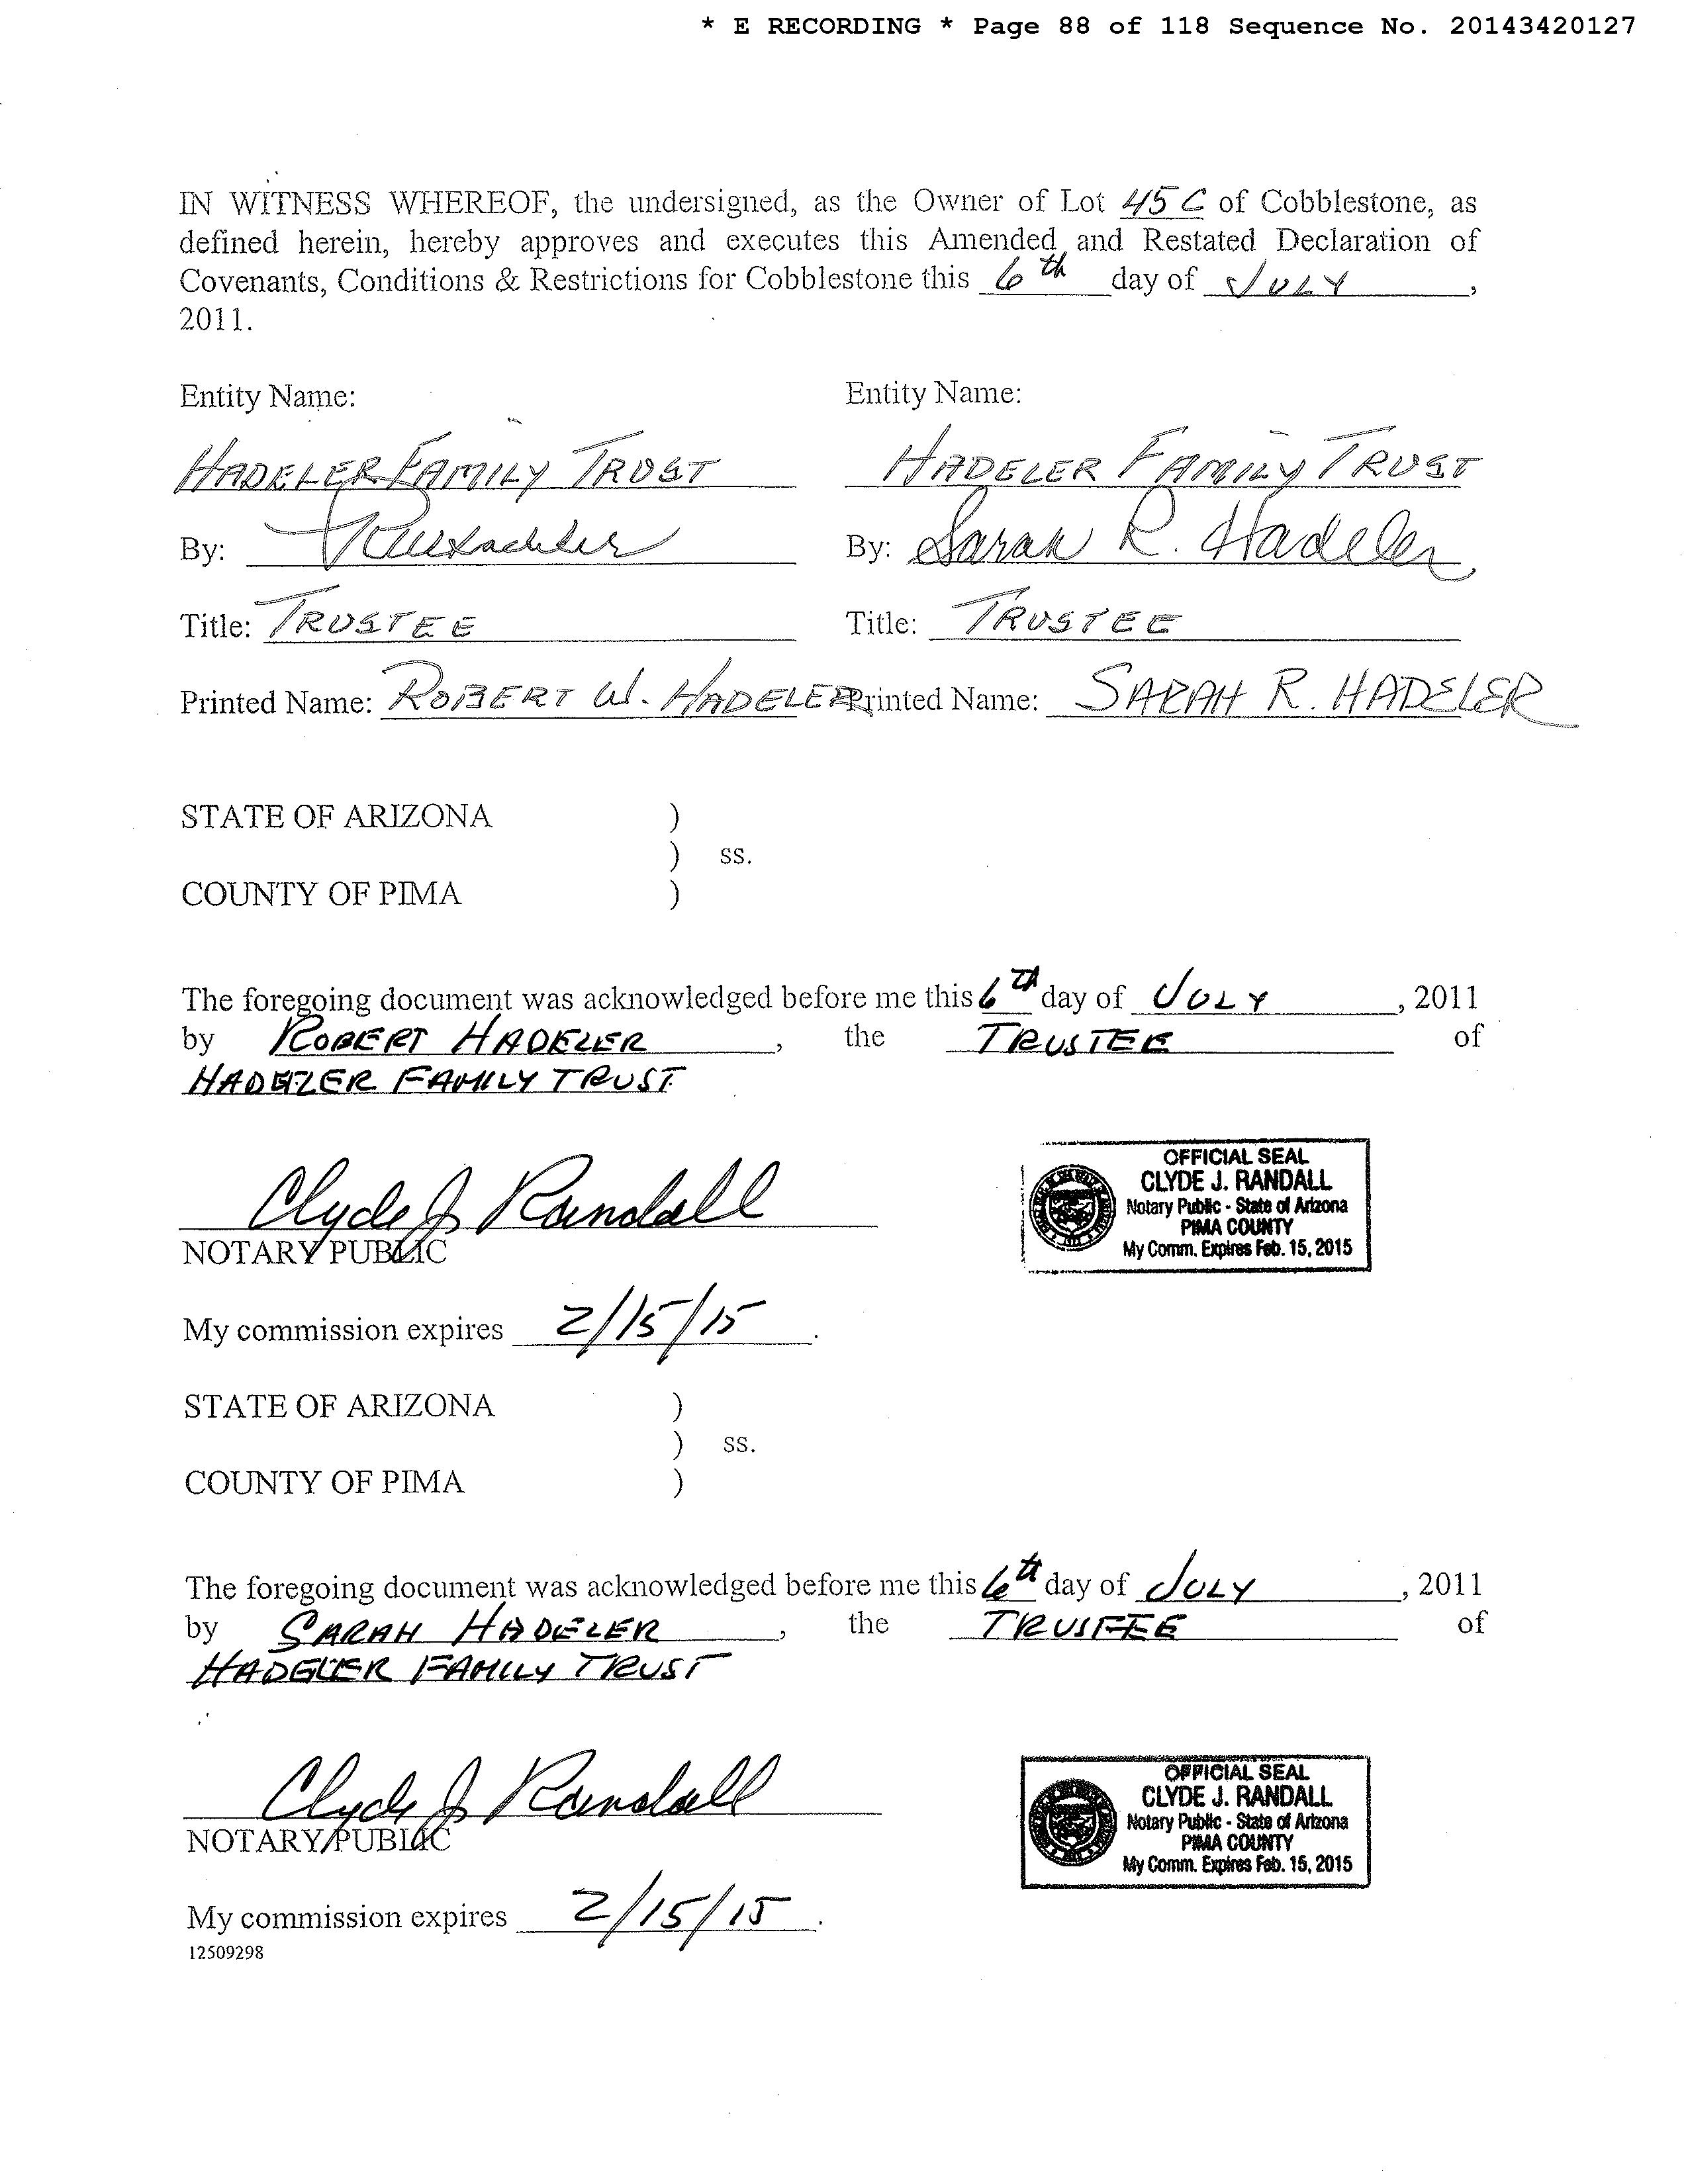 * E RECORDING * Page 88 of 118 Sequence No. 20143420127
IN WITNESS WHEREOF, the undersigned, as the Owner of Lot 45 C of Cobblestone, as
defined herein, hereby approves and executes this Amended and Restated Declaration of
Covenants, Conditions & Restrictions for Cobblestone this 6th day of JULY,
2011.
Entity Name: Entity Name:
HADELER FAMILY TRUST HADELER FAMILY TRUST
By: By: Sarah R. Hadeler
Title: TRUSTEE Title: TRUSTEE
Printed Name: ROBERT W. HADELER Printed Name: SARAH R. HADELER
STATE OF ARIZONA )
) ss.
COUNTY OF PIMA )
The foregoing document was acknowledged before me this 6th day of JULY, 2011
by ROBERT HADELER, the TRUSTEE of
HADELER FAMILY TRUST
Clyde J Randall
NOTARY PUBLIC
OFFICIAL SEAL
CLYDE J. RANDALL
Notary Public - State of Arizona
PIMA COUNTY
My Comm. Expires Feb. 15, 2015
My commission expires 2/15/15.
STATE OF ARIZONA )
) ss.
COUNTY OF PIMA )
The foregoing document was acknowledged before me this 6th day of JULY, 2011
by SARAH HADELER, the TRUSTEE of
HADELER FAMILY TRUST
Clyde J Randall
NOTARY PUBLIC
OFFICIAL SEAL
CLYDE J. RANDALL
Notary Public - State of Arizona
PIMA COUNTY
My Comm. Expires Feb. 15, 2015
My commission expires 2/15/15.
12509298